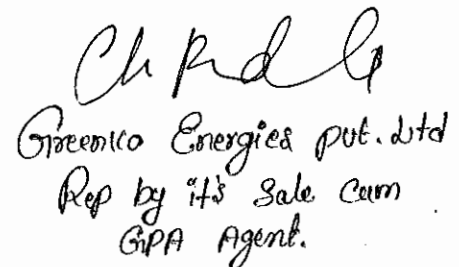 Greenko Energies pvt. Ltd
Rep by it's Sale Cum
GPA Agent.